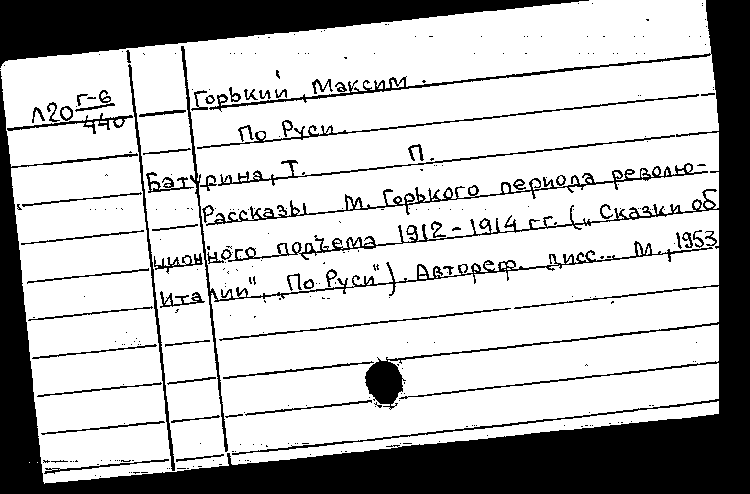 Л20 Г-6/440
Горький, Максим.
По Руси.
Батурина, Т. П.
Рассказы М. Горького периода револю-
ционного подъема 1912-1914 г.г. („Сказки об
Италии", „По Руси"). Автореф. дисс... М., 1953